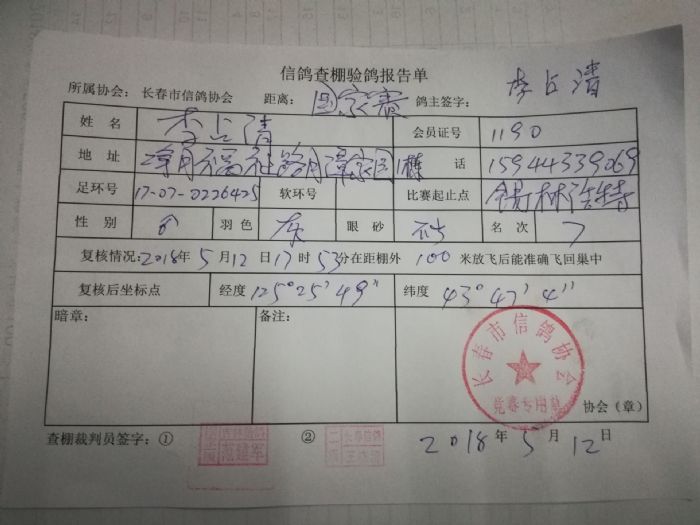 信鸽查棚验鸽报告单
所属协会: 长春市信鸽协会 距离: 国家赛 鸽主签字: 李占清
姓 名 李占清 会员证号 1190
地 址 净月福祉路 话 15944339069
足环号 17-07-0226425 软环号 比赛起止点 锡林浩特
性 别 ♂ 羽色 灰 眼 砂 砂 名 次 7
复核情况: 2018年 5 月 12 日 17 时 53 分在距棚外 100 米放飞后能准确飞回巢中
复核后坐标点 经度 125°25′49″ 纬度 43°47′4″
暗章: 备注:
长春市信鸽协会
竞赛专用章
协会(章)
查棚裁判员签字: ① ② 2018 年 5 月 12 日